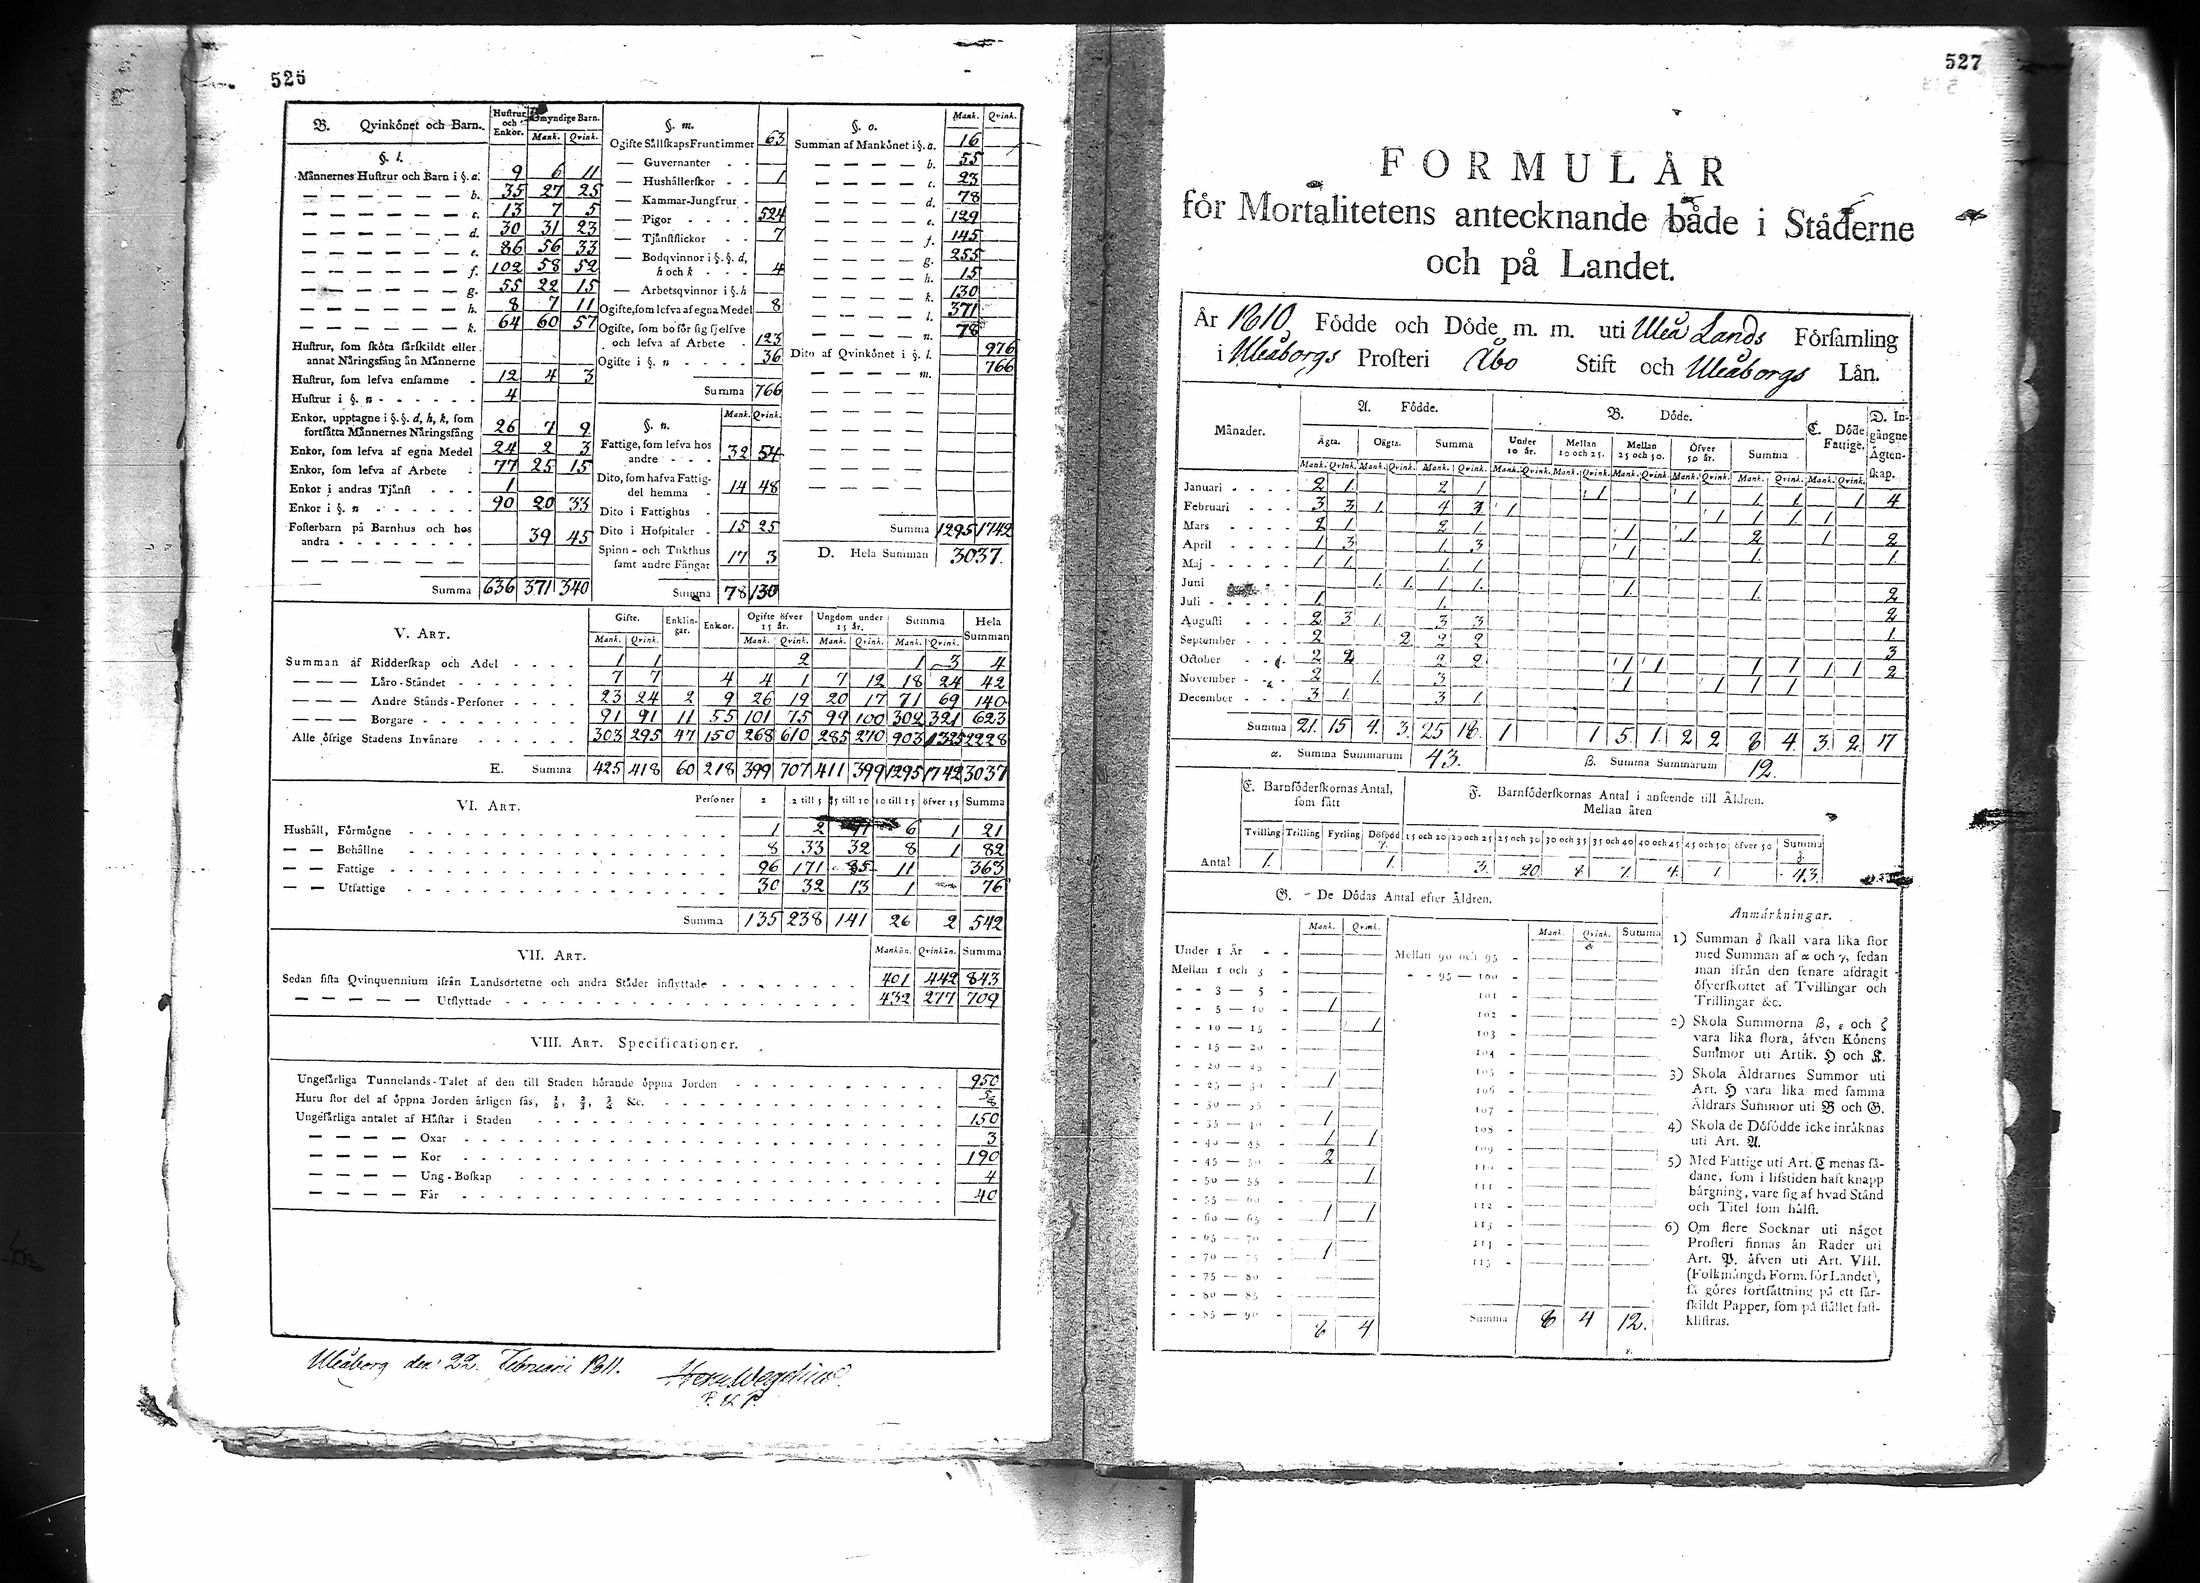 526
B. Qvinkönet och Barn. Hustrur och Enkor. Omyndige Barn. Mank. Qvink.
§. l.
Männernes Hustrur och Barn i §. a. 9 6 11
— — — — — — b. 35 27 25
— — — — — — c. 13 7 5
— — — — — — d. 30 31 23
— — — — — — e. 86 56 33
— — — — — — f. 102 58 52
— — — — — — g. 55 22 15
— — — — — — h. 8 7 11
— — — — — — k. 64 60 57
Hustrur, som sköta särskildt eller
annat Näringsfång än Männerne
Hustrur, som lefva ensamme - 12 4 3
Hustrur i §. n - - - - - - 4
Enkor, upptagne i §.§. d, h, k, som
fortsätta Männernes Näringsfång 26 7 9
Enkor, som lefva af egna Medel 24 2 3
Enkor, som lefva af Arbete - 77 25 15
Enkor i andras Tjänst - - - 1
Enkor i §. n - - - - - - 90 20 33
Fosterbarn på Barnhus och hos
andra - - - - - - - - 39 45
Summa 636 371 340
§. m.
Ogifte SällskapsFruntimmer 63
— Guvernanter - -
— Hushållerskor - - 1
— Kammar-Jungfrur -
— Pigor - - - - 524
— Tjänstflickor - - 7
— Bodqvinnor i §.§. d,
h och k - - - 4
— Arbetsqvinnor i §. h
Ogifte, som lefva af egna Medel 8
Ogifte, som bo för sig sjelfve
och lefva af Arbete - 123
Ogifte i §. n - - - - 36
Summa 766
Mank. Qvink.
§. n.
Fattige, som lefva hos
andre - - - 32 54
Dito, som hafva Fattig-
del hemma - 14 48
Dito i Fattighus -
Dito i Hospitaler - 15 25
Spinn- och Tukthus
samt andre Fångar 17 3
Summa 78 130
§. o. Mank. Qvink.
Summan af Mankönet i §. a. 16
— — — — — b. 55
— — — — — c. 23
— — — — — d. 78
— — — — — e. 129
— — — — — f. 145
— — — — — g. 255
— — — — — h. 15
— — — — — k. 130
— — — — — l. 371
— — — — — n. 78
Dito af Qvinkönet i §. l. 976
— — — — — m. 766
Summa 1295 1742
D. Hela Summan 3037.
V. ART. Gifte. Enklingar. Enkor. Ogifte öfver 15 år. Ungdom under 15 år. Summa Hela Summan
Mank. Qvink. Mank. Qvink. Mank. Qvink. Mank. Qvink.
Summan af Ridderskap och Adel - - - - 1 1 2 1 3 4
— — — Läro-Ståndet - - - - - - - 7 7 4 4 1 7 12 18 24 42
— — — Andre Stånds-Personer - - - - 23 24 2 9 26 19 20 17 71 69 140
— — — Borgare - - - - - - - - - 91 91 11 55 101 75 99 100 302 321 623
Alle öfrige Stadens Invånare - - - - - - 303 295 47 150 268 610 285 270 903 1325 2228
E. Summa 425 418 60 218 399 707 411 399 1295 1742 3037
VI. ART. Personer 2 2 till 5 5 till 10 10 till 15 öfver 15 Summa
Hushåll, Förmögne 1 2 11 6 1 21
— — Behållne 8 33 32 8 1 82
— — Fattige 96 171 85 11 363
— — Utfattige 30 32 13 1 76
Summa 135 238 141 26 2 542
VII. ART. Mankön. Qvinkön. Summa
Sedan sista Qvinquennium ifrån Landsortetne och andra Städer inflyttade 401 442 843
— — — — — Utflyttade 432 277 709
VIII. ART. Specificationer.
Ungefärliga Tunnelands-Talet af den till Staden hörande öppna Jorden 950
Huru stor del af öppna Jorden årligen sås, ½, ⅔, ¾ &c.
Ungefärliga antalet af Hästar i Staden 150
— — — — Oxar 3
— — — — Kor 190
— — — — Ung-Boskap 4
— — — — Får 40
Uleåborg den 22. Februarii 1811.
527
FORMULÄR
för Mortalitetens antecknande både i Städerne
och på Landet.
År 1810 Födde och Döde m. m. uti Uleå Lands Församling
i Uleåborgs Prosteri Åbo Stift och Uleåborgs Län.
Månader. A. Födde. B. Döde. C. Döde Fattige. D. Ingångne Ägtenskap.
Ägta. Oägta. Summa Under 10 år. Mellan 10 och 25. Mellan 25 och 50. Öfver 50 år. Summa
Mank. Qvink. Mank. Qvink. Mank. Qvink. Mank. Qvink. Mank. Qvink. Mank. Qvink. Mank. Qvink. Mank. Qvink. Mank. Qvink.
Januari - - - - 2 1. 2 1 1 1 1 1 1 4
Februari - - - 3 3 1 4 3 1 1 1 1 1
Mars - - - - 2 1 2 1. 1 1 2 1 2
April - - - - 1 3 1. 3 1 1. 1.
Maj - - - - 1 1 1. 1
Juni 1. 1. 1. 1. 1. 1. 2
Juli - - - - - 1. 1. 2
Augusti - - - 2 3 1. 3 3 1.
September - - - 2 2 2 2 3
October 2 2 2 2 1 1 1 1 1 1 2
November - 2 1. 3 1 1 1 1
December - - - 3 1. 3 1
Summa 21. 15 4. 3. 25 18. 1 1 5. 1. 2 2 8 4. 3. 2. 17
α. Summa Summarum 43. β. Summa Summarum 12.
E. Barnföderskornas Antal, som fått F. Barnföderskornas Antal i anseende till Åldren.
Mellan åren
Tvilling Trilling Fyrling Dödfödd 15 och 20 20 och 25 25 och 30 30 och 35 35 och 40 40 och 45 45 och 50 öfver 50 Summa
Antal 1. 1. 3. 20. 8 7. 4. 1 43.
G. - De Dödas Antal efter Åldren.
Mank. Qvink. Mank. Qvink. Summa
Under 1 År - - Mellan 90 och 95 -
Mellan 1 och 3 - - - 95 — 100 -
- - 3 — 5 - 101 -
- - 5 — 10 - 1 102 -
- - 10 — 15 - 1 103 -
- - 15 — 20 - 104 -
- - 20 — 25 - 105 -
- - 25 — 30 - 1 106 -
- - 30 — 35 - 107 -
- - 35 — 40 - 1 108 -
- - 40 — 45 - 1 1 109 -
- - 45 — 50 - 2 110 -
- - 50 — 55 - 1 111 -
- - 55 — 60 - 112 -
- - 60 — 65 - 1 1 113 -
- - 65 — 70 - 114 -
- - 70 — 75 - 1 115 -
- - 75 — 80 -
- - 80 — 85 -
- - 85 — 90 -
8 4 Summa 8 4 12.
Anmärkningar.
1) Summan δ skall vara lika stor
med Summan af α och γ, sedan
man ifrån den senare afdragit
öfverskottet af Tvillingar och
Trillingar &c.
2) Skola Summorna β, ε och ζ
vara lika stora, äfven Könens
Summor uti Artik. H och K.
3) Skola Åldrarnes Summor uti
Art. H vara lika med samma
Åldrars Summor uti B och G.
4) Skola de Dödfödde icke inräknas
uti Art. A.
5) Med Fattige uti Art. C menas så-
dane, som i lifstiden haft knapp
bärgning, vare sig af hvad Stånd
och Titel som hälst.
6) Om flere Socknar uti något
Prosteri finnas än Rader uti
Art. P. äfven uti Art. VIII.
(Folkmängds Form. för Landet),
så göres fortsättning på ett sär-
skildt Papper, som på stället fast-
klistras.